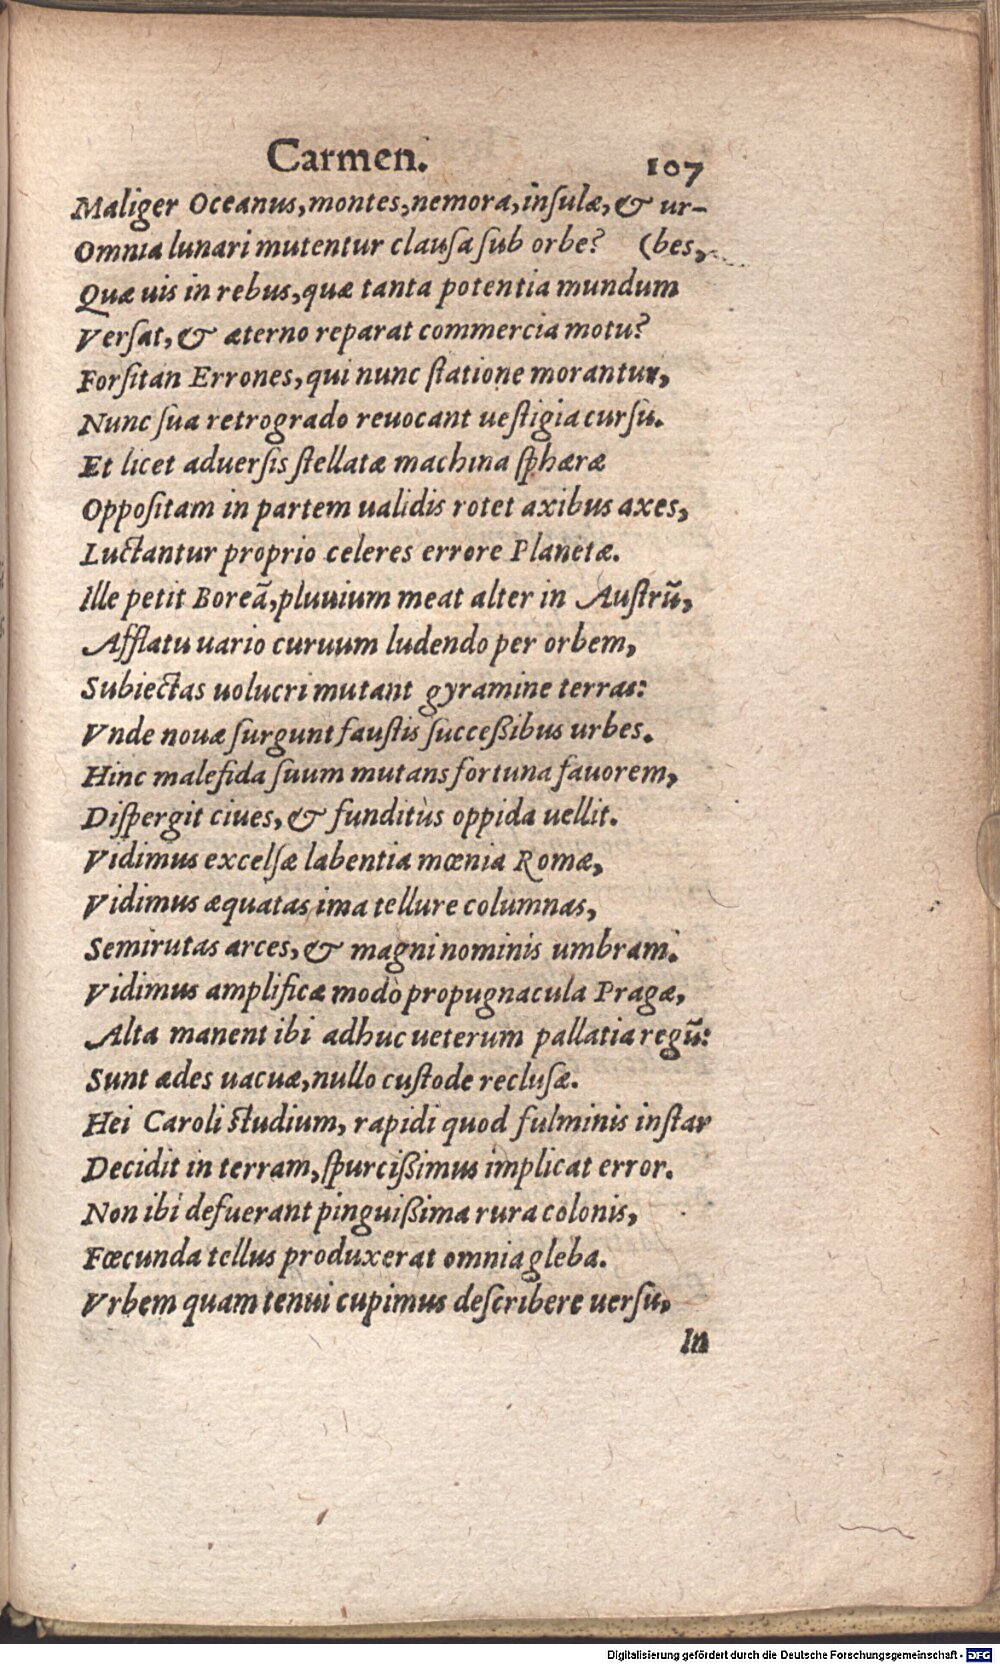 Carmen. 107
Maliger Oceanus, montes, nemora, insulæ, & ur-
Omnia lunari mutentur clausa sub orbe? (bes,
Quæ uis in rebus, quæ tanta potentia mundum
Versat, & æterno reparat commercia motu?
Forsitan Errones, qui nunc statione morantur,
Nunc sua retrogrado reuocant uestigia cursu.
Et licet aduersis stellatæ machina sphæræ
Oppositam in partem ualidis rotet axibus axes,
Luctantur proprio celeres errore Planetæ.
Ille petit Boreã, pluuium meat alter in Austrũ,
Afflatu uario curuum ludendo per orbem,
Subiectas uolucri mutant gyramine terras:
Vnde nouæ surgunt faustis successibus urbes.
Hinc malefida suum mutans fortuna fauorem,
Dispergit ciues, & funditùs oppida uellit.
Vidimus excelsæ labentia mœnia Romæ,
Vidimus æquatas ima tellure columnas,
Semirutas arces, & magni nominis umbram.
Vidimus amplificæ modò propugnacula Pragæ,
Alta manent ibi adhuc ueterum pallatia regũ:
Sunt ædes uacuæ, nullo custode reclusæ.
Hei Caroli studium, rapidi quod fulminis instar
Decidit in terram, spurcissimus implicat error.
Non ibi defuerant pinguissima rura colonis,
Fœcunda tellus produxerat omnia gleba.
Vrbem quam tenui cupimus describere uersu,
In
Digitalisierung gefördert durch die Deutsche Forschungsgemeinschaft - DFG